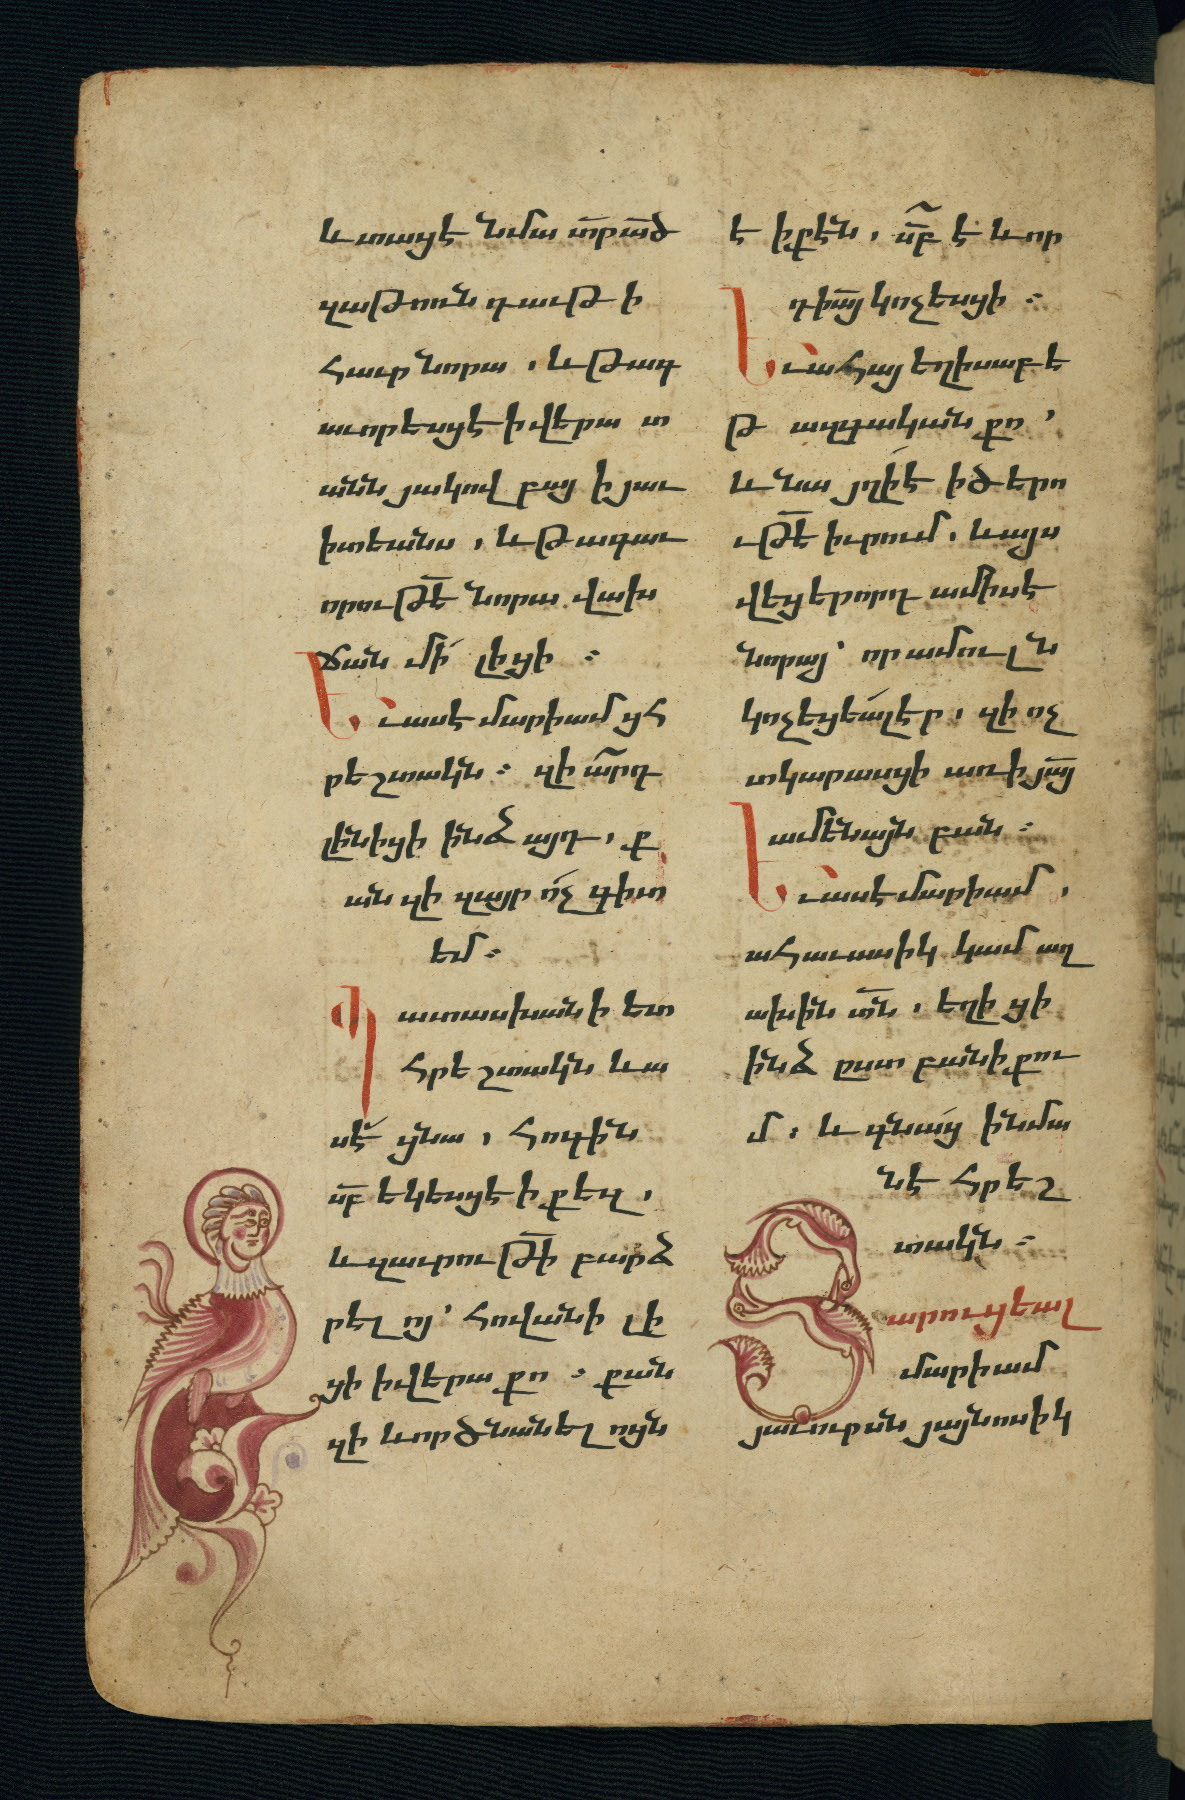 և տացէ նմա տ̅ր ա̅ծ
զաթոռն դաւթի
հաւր նորա, և թագ
աւորեսցէ ի վերա տ
անն յակովբայ ի յաւ
իտեանս, և թագաւ
որութ̅ե նորա վախ
ճան մի́ լիցի ։
Եւ ասէ մարիամ ցհ
րեշտակն ։ զի ա̅րդ
լինիցի ինձ այդ, ք
ան զի զայր ո́չ գիտ
եմ ։
Պատասխանի ետ
հրեշտակն և ա
սէ́ ցնա, հոգին
ս̅բ եկեսցէ ի քեզ,
և զաւրութ̅ի բարձ
րելոյ՝ հովանի լի
ցի ի վերա քո ։ քան
զի և որ ծնանելոցն
է ի քէն, ս̅բ է և որ
դի ա̅յ կոչեսցի ։
Եւ ահա յեղիսաբե
թ ազգական քո,
և նա յղի́ է ի ծերո
ւթ̅ե իւրում, և այս
վեցերորդ ամիս է
նորայ՝ որ ամուլն
կոչեցեա́լ էր, զի ոչ
տկարասցի առ ի յա̅յ
ամենայն բան ։
Եւ ասէ մարիամ,
ահաւասիկ կամ աղ
ախին տ̅ն, եղիցի
ինձ ըստ բանի քու
մ, և գնա́ց ի նմա
նէ հրեշ
տակն ։
Յարուցեալ
մարիամ
յաւուրսն յայնոսիկ